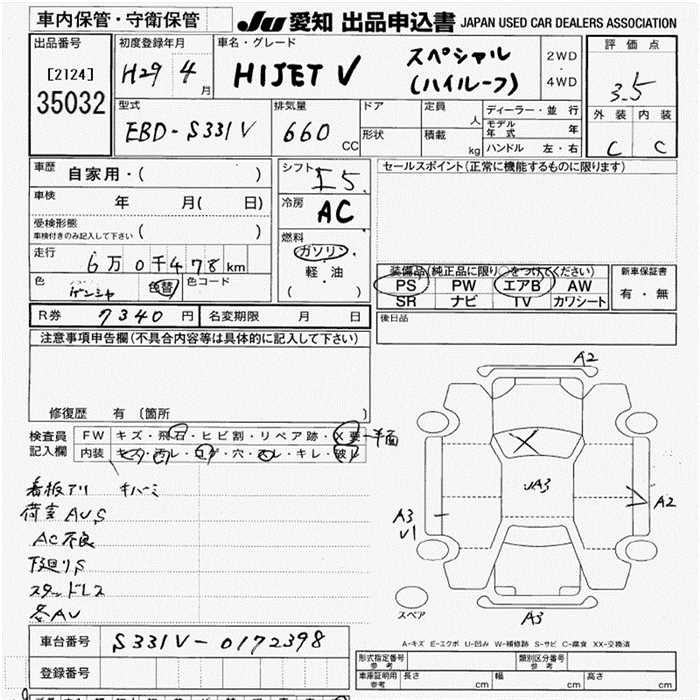 車内保管・守衛保管
JU 愛知 出品申込書 JAPAN USED CAR DEALERS ASSOCIATION
出品番号
[2124]
35032
初度登録年月
H29 4 月
車名・グレード
HIJET V スペシャル
(ハイルーフ)
2WD
・
4WD
評価点
3.5
外装 内装
C C
型式
EBD-S331V
排気量
660 CC
ドア
形状
定員 人
積載 kg
ディーラー・並行
モデル年式 年
ハンドル 左・右
車歴 自家用・( )
車検 年 月( 日)
受検形態
車検付きのみ記入して下さい ( )
走行 6万0千478km
色 色替 色コード
シフト I5
冷房 AC
燃料
ガソリン
・
軽・油
( )
セールスポイント(正常に機能するものに限ります)
装備品(純正品に限り○をつけてください)
PS PW エアB AW
SR ナビ TV カワシート
新車保証書
有・無
後日品
R券 7340円 名変期限 月 日
注意事項申告欄(不具合内容等は具体的に記入して下さい)
修復歴 有 〔箇所 〕
検査員
記入欄
FW キズ・飛石・ヒビ割・リペア跡・X要
内装 キズ・汚レ・コゲ・穴・スレ・キレ・破レ
看板アリ キハーミ
荷室AUS
AC不良
下廻りS
スタッドレス
各AU
A2
JA3
A3
V1
A2
A3
スペア
A-キズ E-エクボ U-凹み W-補修跡 S-サビ C-腐食 XX-交換済
車台番号 S331V-0172398
登録番号
形式指定番号
参考
類別区分番号
参考
車庫証明用
参考
長さ cm 幅 cm 高さ cm